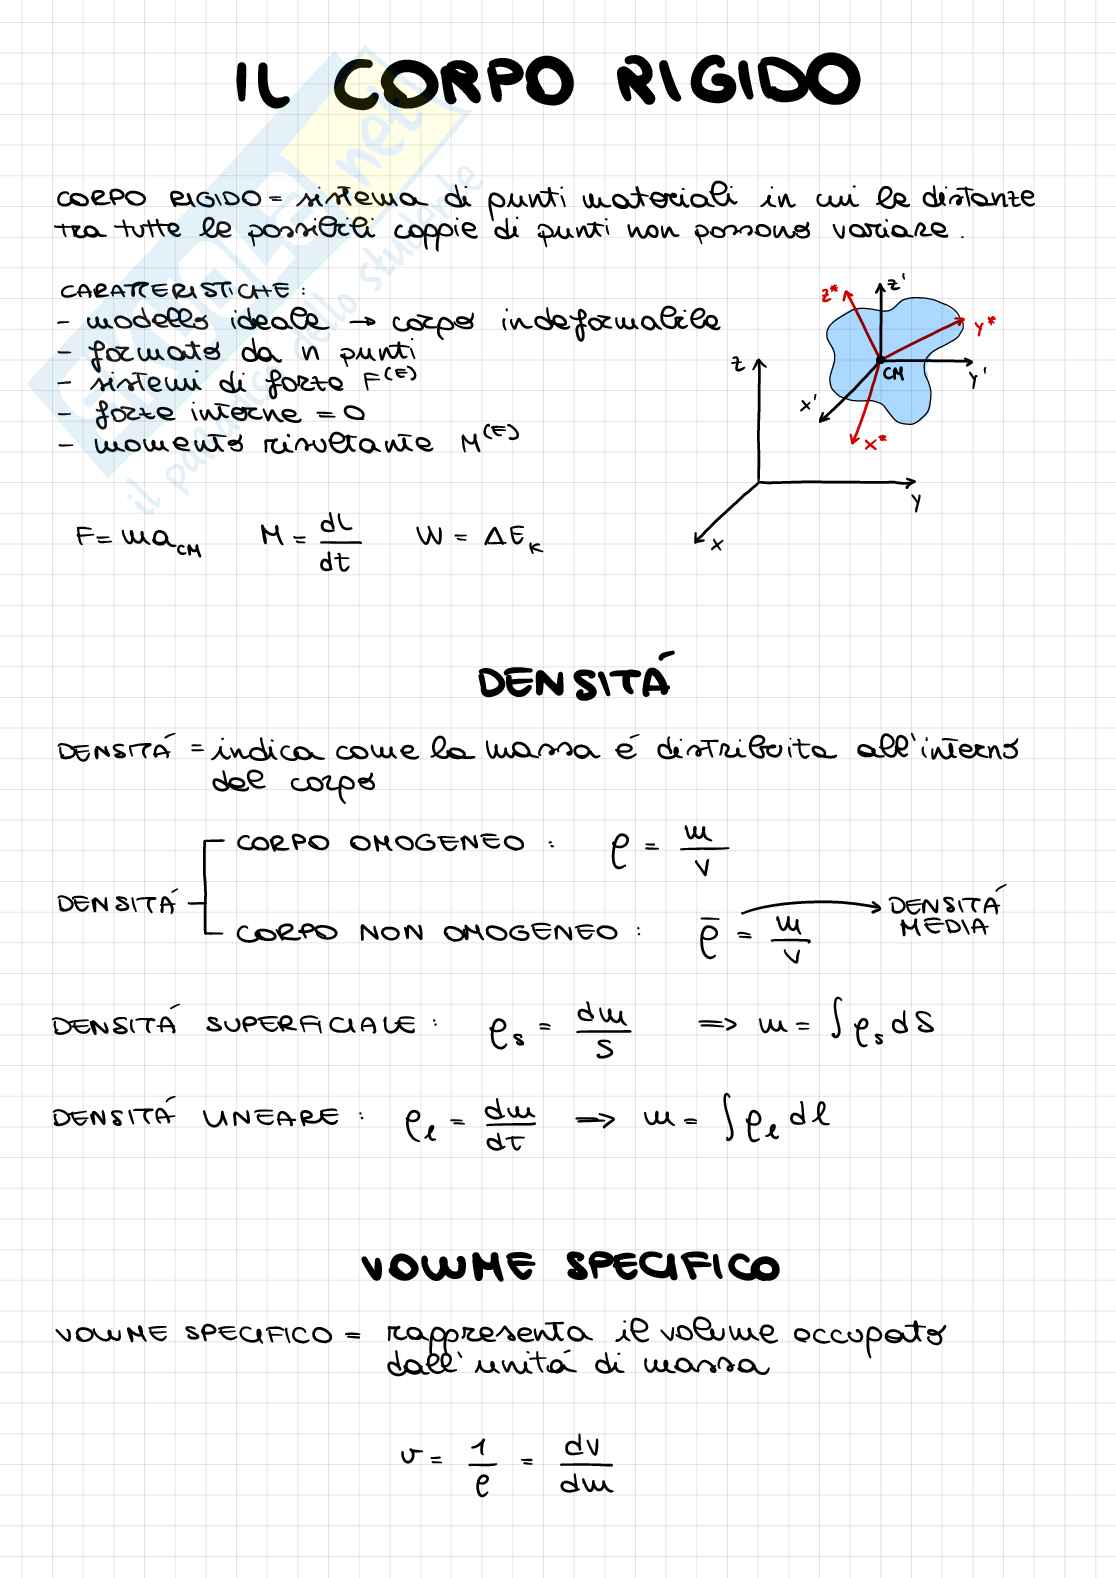 IL CORPO RIGIDO
CORPO RIGIDO = sistema di punti materiali in cui le distanze
tra tutte le possibili coppie di punti non possono variare.
CARATTERISTICHE:
- modello ideale → corpo indeformabile
- formato da n punti
- sistemi di forze F^(E)
- forze interne = 0
- momento risultante M^(E)
z* z' y* CM y' x' x*
z y x
F = ma_CM M = dL/dt W = ΔE_K
DENSITÁ
DENSITÁ = indica come la massa é distribuita all'interno
del corpo
CORPO OMOGENEO : ρ = m/V
DENSITÁ
CORPO NON OMOGENEO : ρ̄ = m/V → DENSITÁ
MEDIA
DENSITÁ SUPERFICIALE : ρ_s = dm/S => m = ∫ρ_s dS
DENSITÁ LINEARE : ρ_l = dm/dτ => m = ∫ρ_l dl
VOLUME SPECIFICO
VOLUME SPECIFICO = rappresenta il volume occupato
dall'unitá di massa
v = 1/ρ = dV/dm